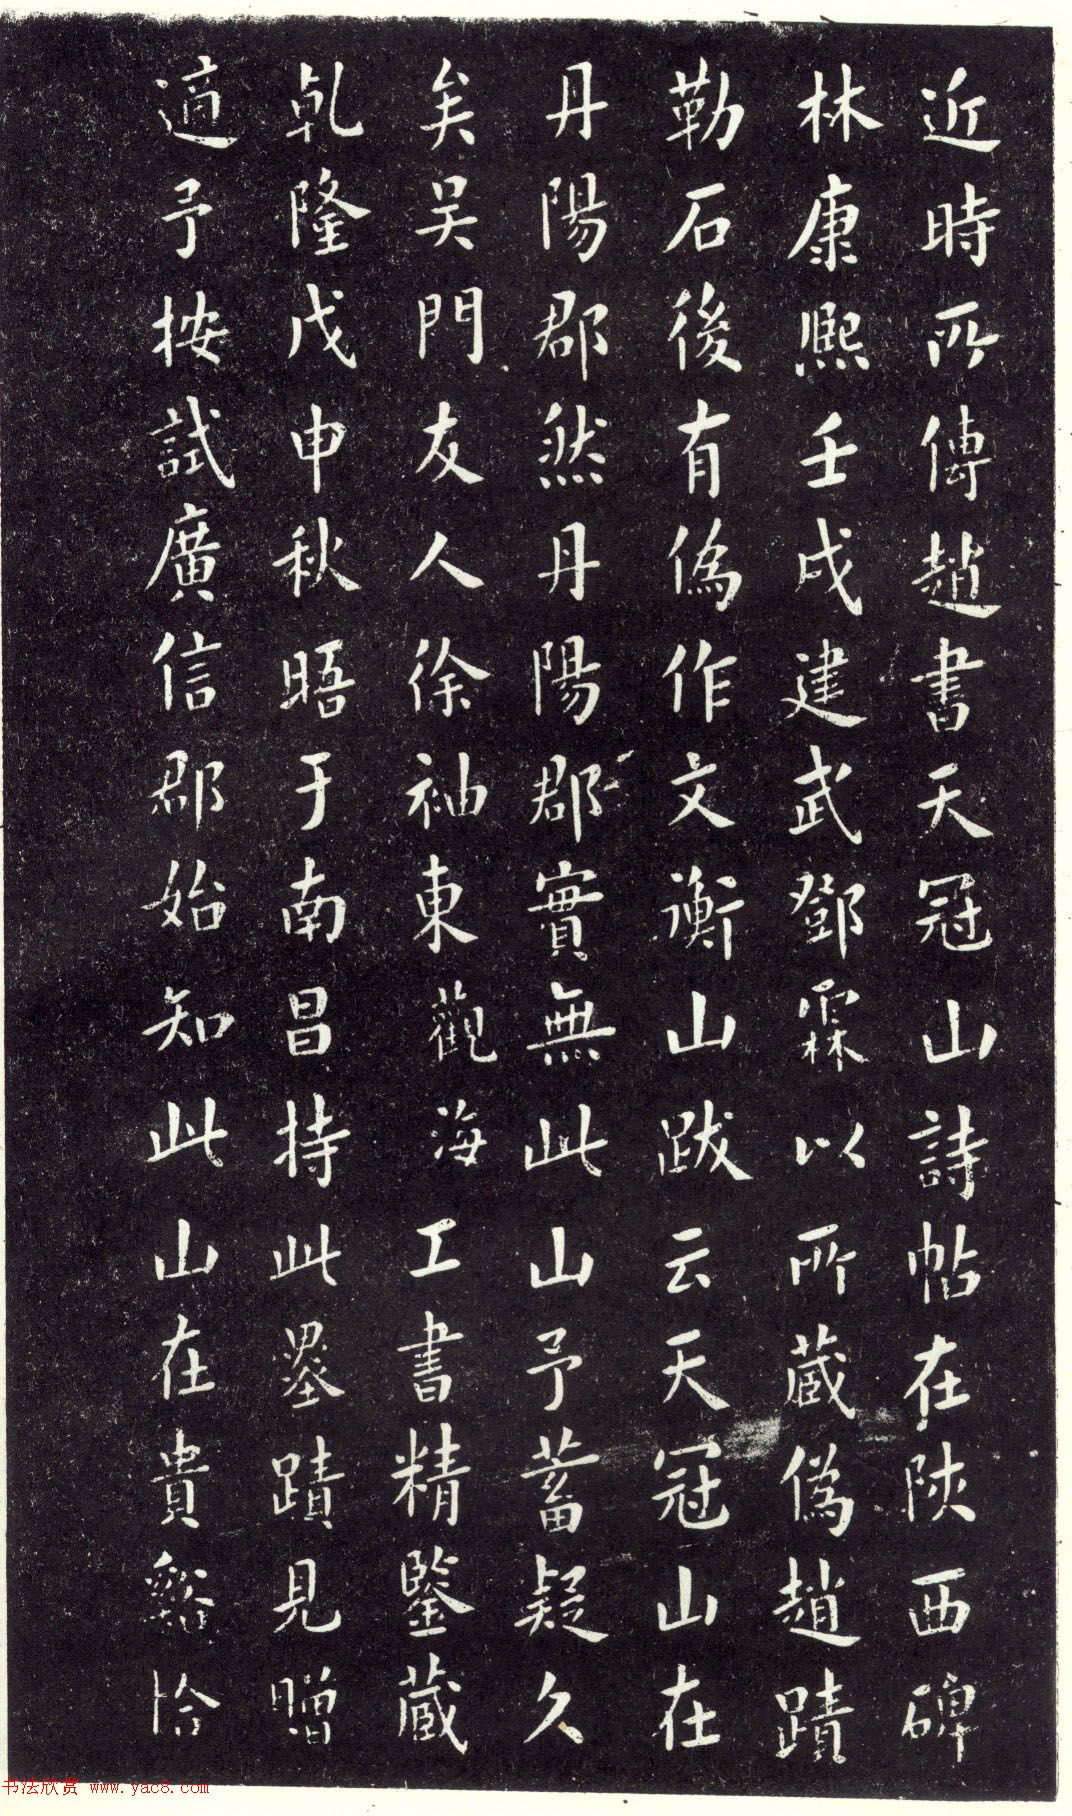 近時所傳趙書天冠山詩帖在陝西碑
林康熙壬戌建武鄧霖以所蔵偽趙蹟
勒石後有偽作文衡山跋云天冠山在
丹陽郡然丹陽郡實無此山予蓄疑久
矣吴門友人徐袖東觀海工書精鑒蔵
乹隆戊申秋晤于南昌持此墨蹟見贈
適予按試廣信郡始知此山在貴谿恰
书法欣赏 www.yac8.com